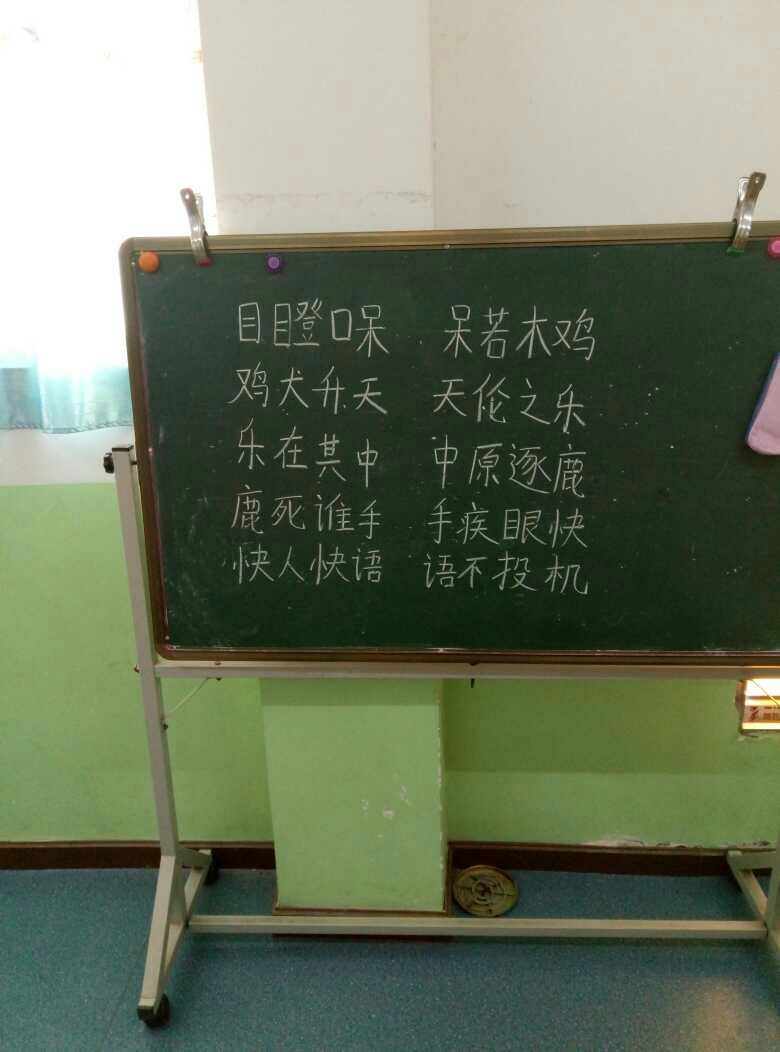 目瞪口呆 呆若木鸡
鸡犬升天 天伦之乐
乐在其中 中原逐鹿
鹿死谁手 手疾眼快
快人快语 语不投机